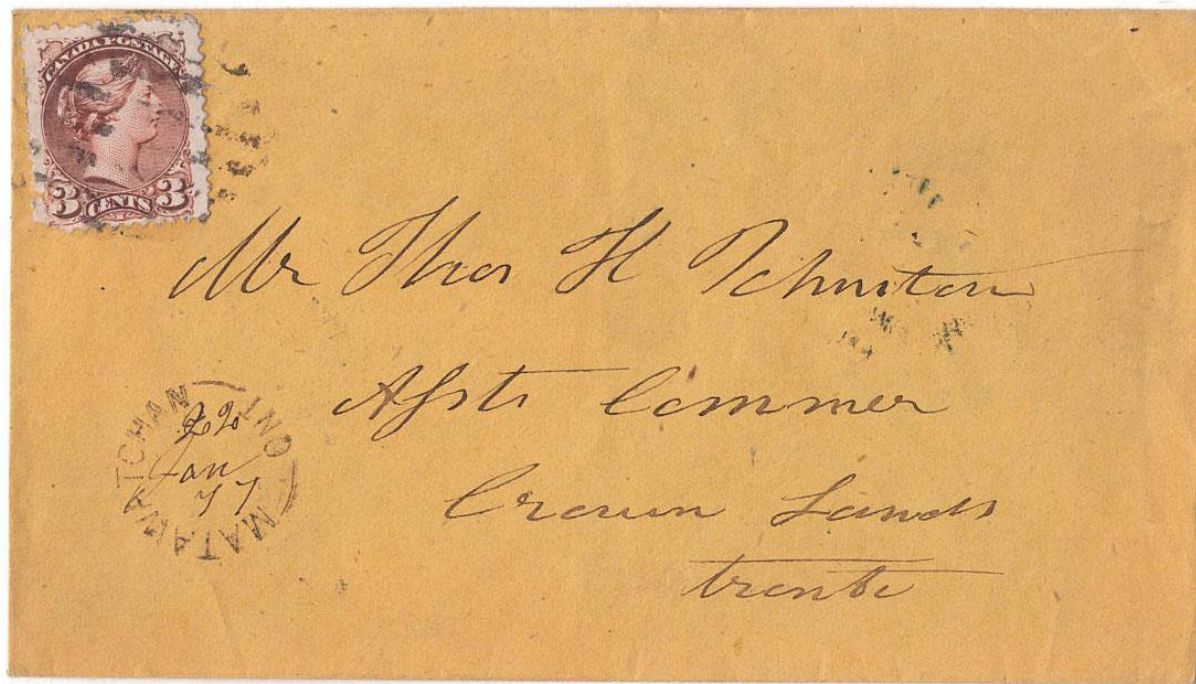 CANADA POSTAGE
3 CENTS 3
Mr Thos H Johnston
Assts Commer
Crown Lands
tronto
MATAWATCHAN ONT
Jan
77